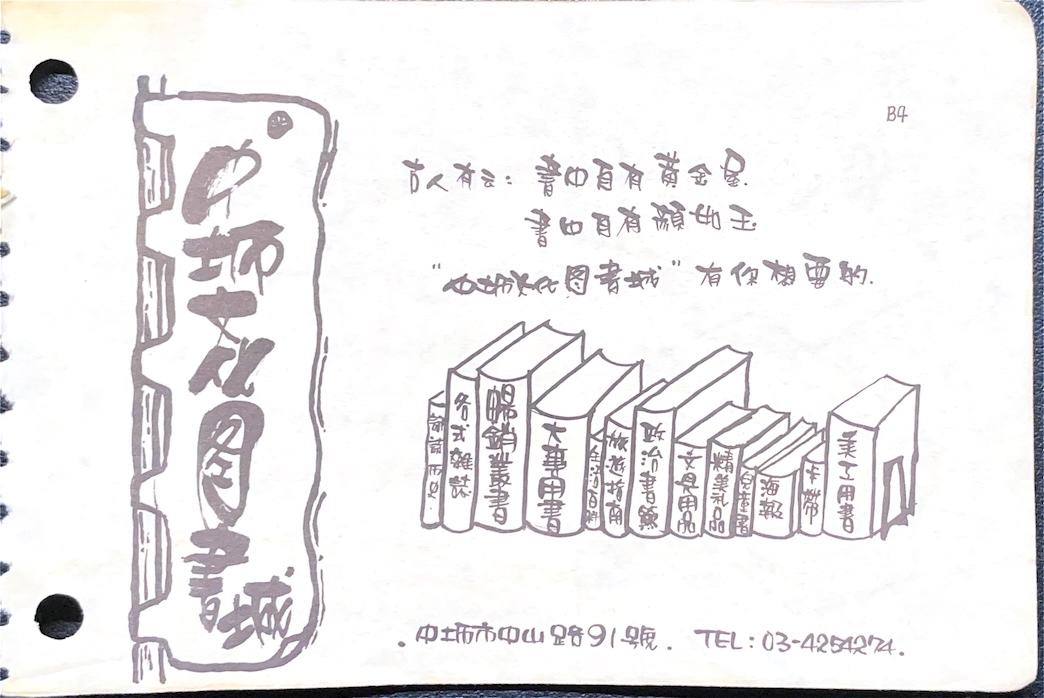 中坜文化图書城
B4
古人有云：書中自有黃金屋
書中自有顏如玉
"中坜文化图書城"有你想要的.
各式雜誌
暢銷叢書
大專用書
生活百科
旅遊指南
政治書籍
文具用品
精美礼品
兒童書
海報
卡帶
美工用書
. 中坜市中山路91號. TEL:03-4254274.